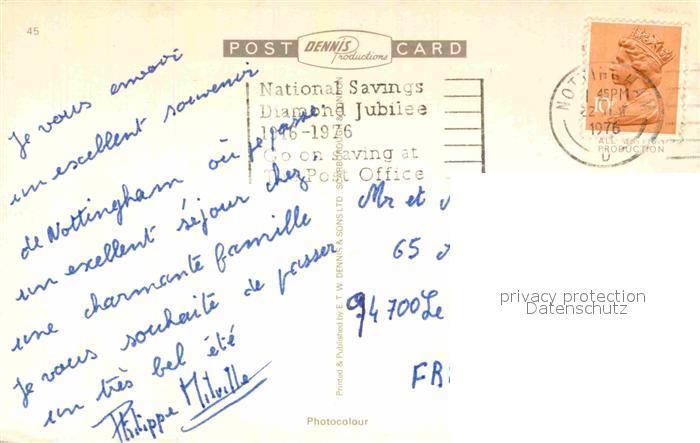 45
POST DENNIS Productions CARD
National Savings
Diamond Jubilee
1916-1976
Go on saving at
Post Office
NOTTINGH
45PM
22
1976
ALL
PRODUCTION
10
Je vous envoi
un excellent souvenir
de Nottingham où je passe
un excellent séjour chez
une charmante famille
Je vous souhaite de passer
un très bel été
Philippe Milville
Printed & Published by E. T. W. DENNIS & SONS LTD. SCARBOROUGH & LONDON
Mr et
65
94700 Le
FR
privacy protection
Datenschutz
Photocolour